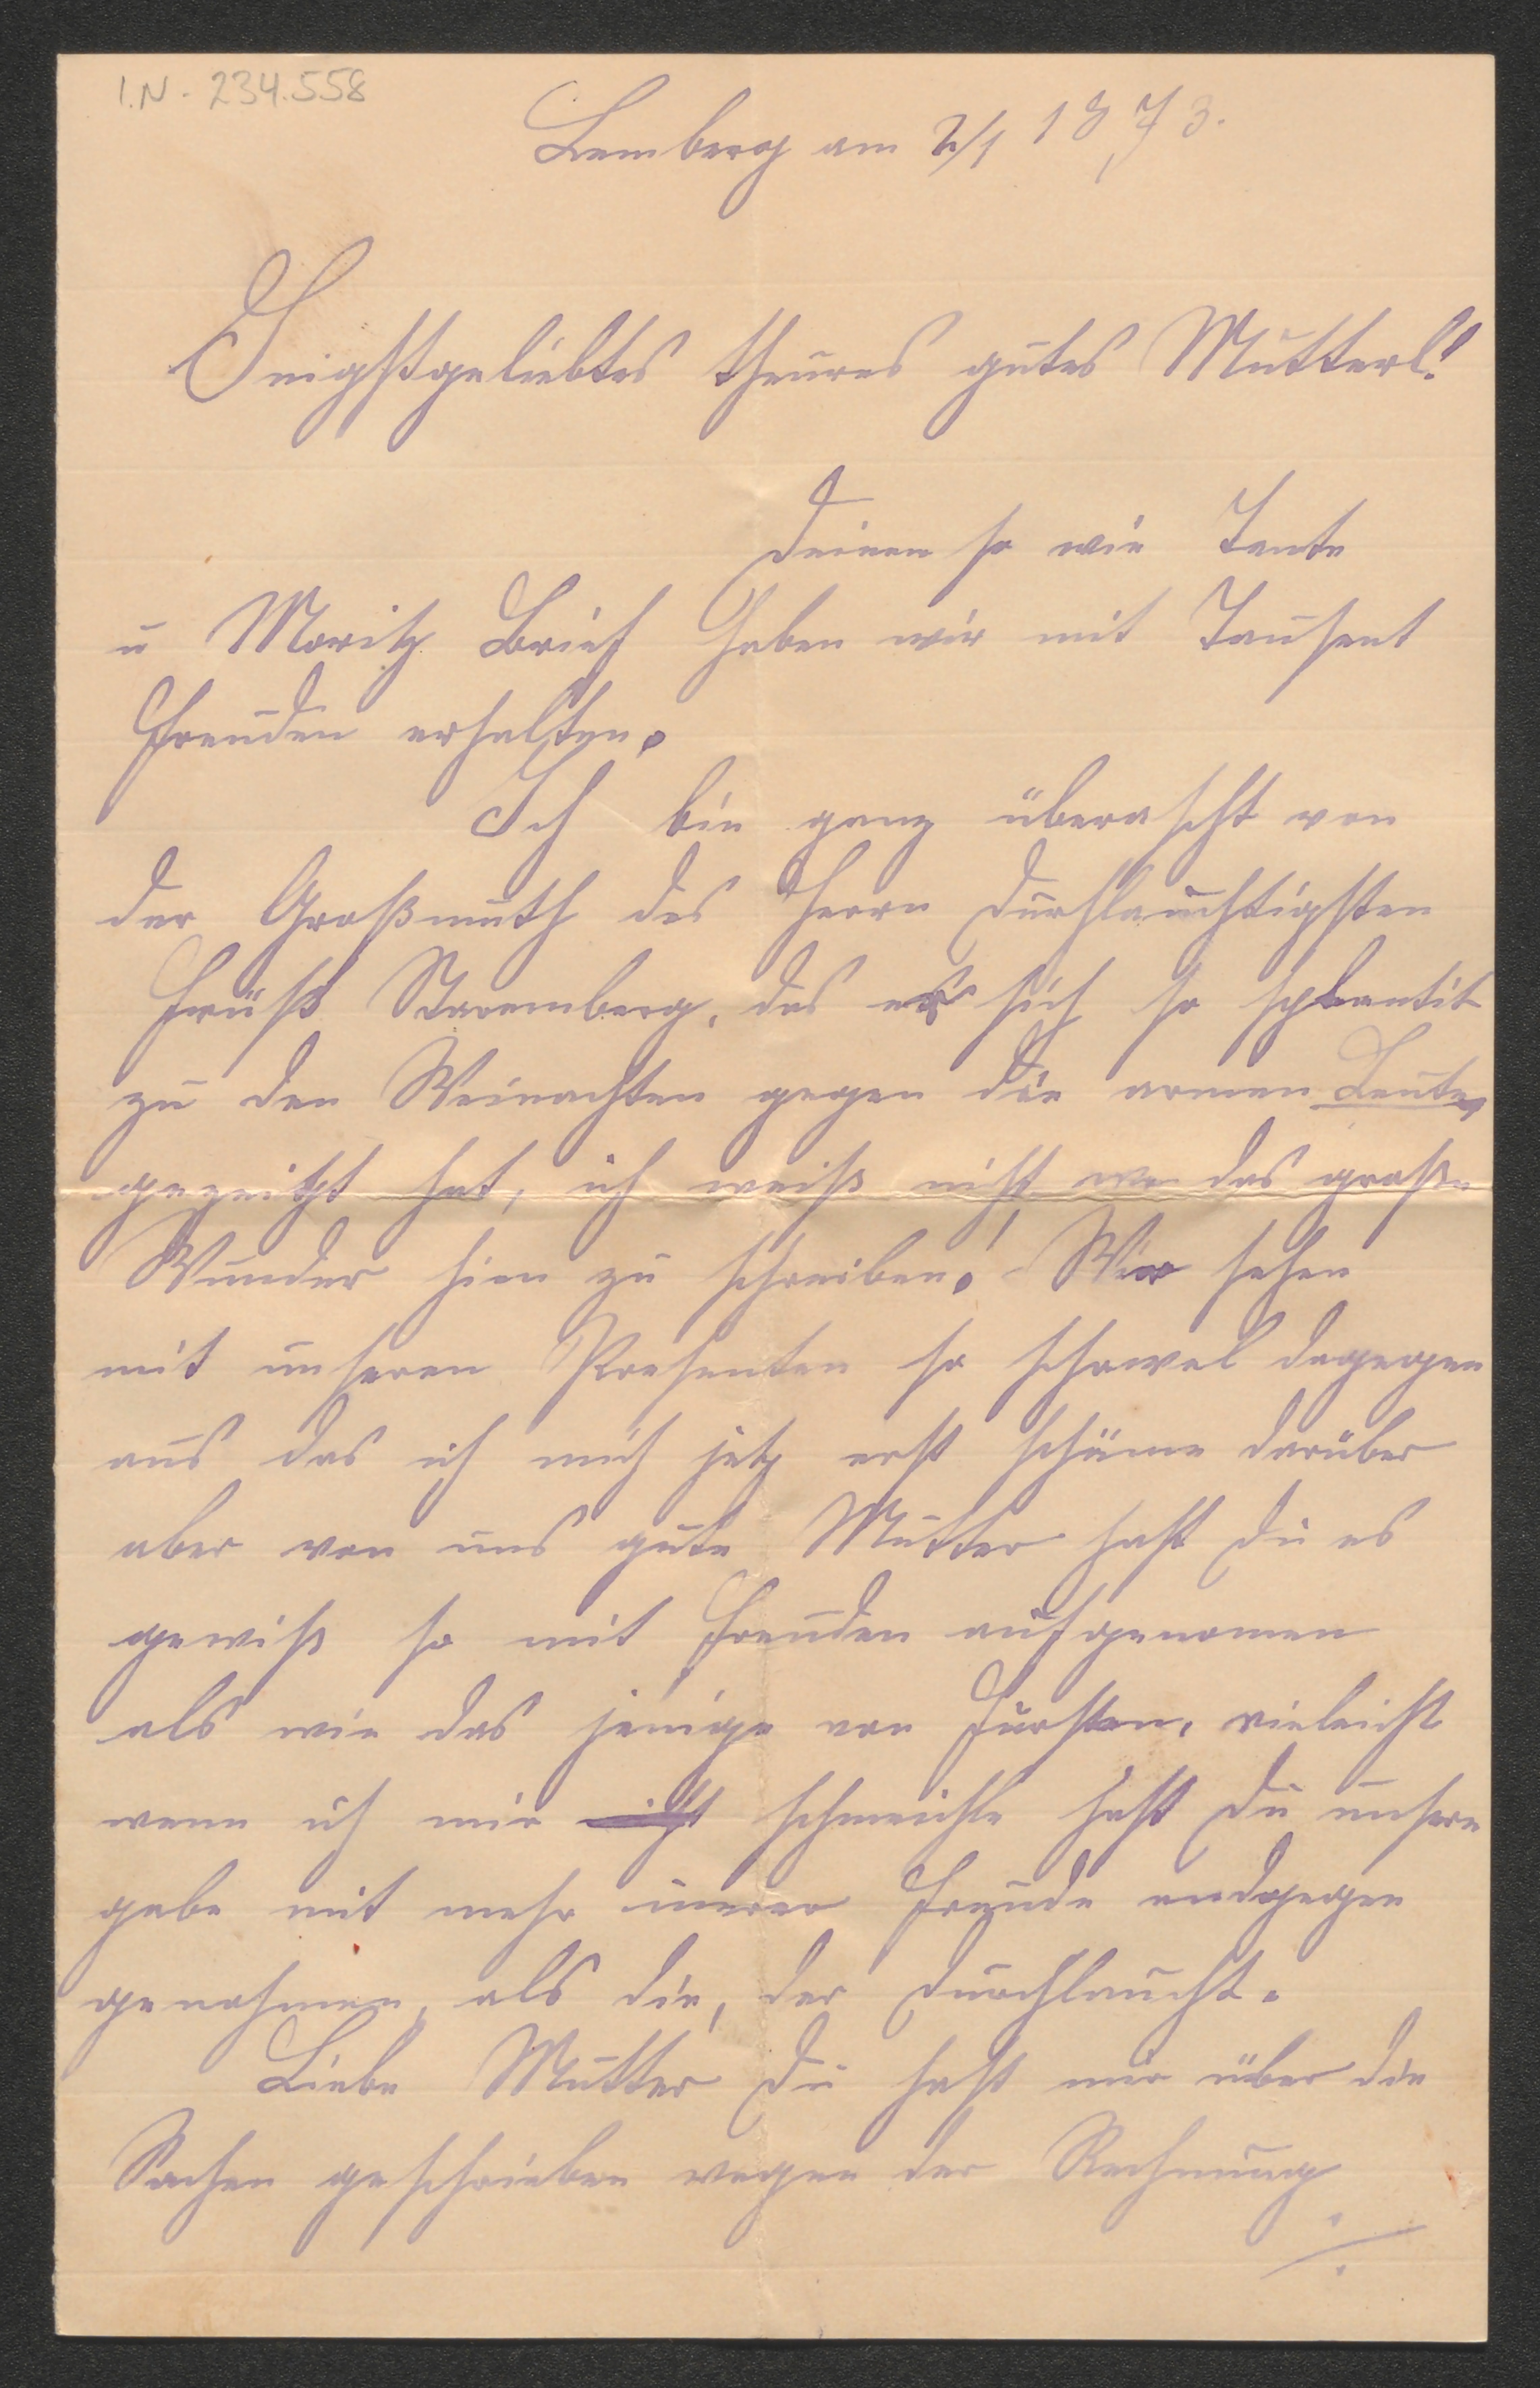 I.N. 234.558
Lemberg am 2/1 1873.
Inigstgeliebtes theures gutes Mutterl!
Deinen so wie Tante
u Moritz Brief haben wir mit Tausent
Freuden erhalten.
Ich bin ganz überascht von
der Großmuth des Herrn Durchlauchtigsten
Staremberg, das er sich so splentit
zu den Weinachten gegen die armen Leute
gezeitgt hat, ich weiß nicht wo das große
Wunder hien zu schreiben. Wir sehen
mit unseren Presenten so schowel dagegen
aus das ich mich jetz erst schäme darüber
aber von uns gute Mutter hast du es
gewiß so mit Freuden aufgenomen
als wie das jenige von Fürsten, vieleicht
wenn ich mir schmeichle hast Du unsere
gabe mit mehr inerer Freude endgegen
genohmen, als die, der Durchlaucht.
Liebe Mutter Du hast mir über die
Sachen geschrieben wegen der Rechnung
./.